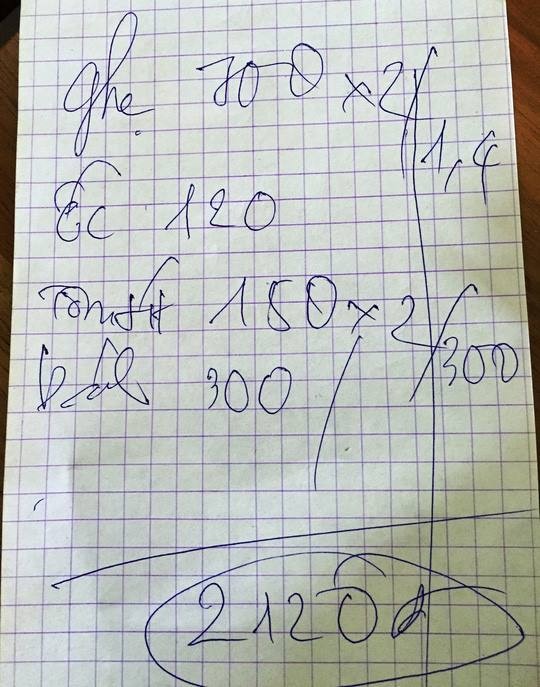 ghẹ 700 x 2 / 1,4
Ốc 120
Tôm 150 x 2 / 300
300 /
2120 đ